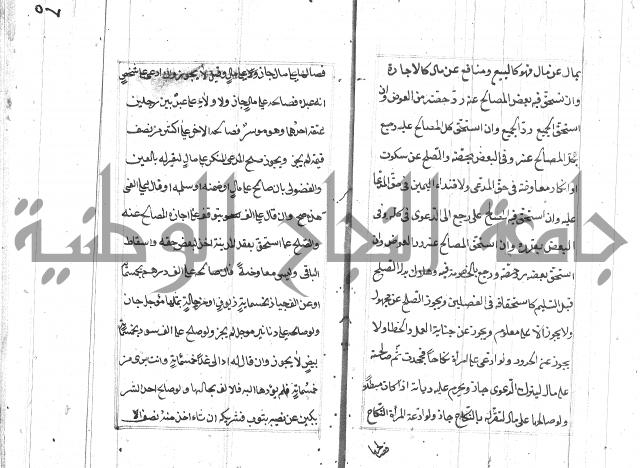 بمال عن مال فهو كالبيع ومنافع عن مال كالاجارة
وان استحق فيه بعض المصالح عنه ردّ حصته من العوض وان
استحق الجميع ردّ الجميع وان استحق كل المصالح عليه رجع
بكل المصالح عنه وفي البعض بحصته والصلح عن سكوت
او انكار معاوضة في حق المدعي ولافتداء اليمين في حق المدعا
عليه وان استحق فيه المصالح على رجع الى الدعوى في كله وفي
البعض بقدره وان استحق المصالح عنه رد العوض وان
استحق بعضه رد حصته ورجع بالخصومة فيه وهلاك بدل الصلح
قبل التسليم كاستحقاقه في الفصلين ويجوز الصلح عن مجهول
ولا يجوز الا على معلوم ويجوز عن جناية العمد والخطا ولا
يجوز عن الحدود ولو ادعى على امرأة نكاحاً فجحدت ثم صالحته
على مال ليترك الدعوى جاز ويحرم عليه ديانة اذا كان مبطلا
ولو صالحها على مال لتقر له بالنكاح جاز ولو ادعت المرأة النكاح
فصالحها
٧٥
فصالحها على مال جاز وقيل لا يجوز وان ادعى على شخص
انه عبده فصالحه على مال جاز ولا ولاء عليه عبد بين رجلين
عتقه احدهما وهو موسر فصالحه الاخر على اكثر من نصف
قيمته لم يجز ويجوز صلح المدعي المنكر على مال ليقر له بالعين
والفضولي بان صالح على مال وضمنه او سلمه او قال على الفي
هذه صح وان قال على الف يتوقف على اجازة المصالح عنه
والصلح عما استحق بعقد المداينة اخذ لبعض حقه واسقاط
الباقي وليس معاوضة فلو صالحه على الف درهم بخمسمائة
او عن الف جياد بخمسمائة زيوف او عن حالة بمثلها مؤجل جاز
ولو صالحه على دنانير مؤجل لم يجز ولو صالح على الف سود بخمسمائة
بيض لا يجوز وان قال له اد الي غدا خمسمائة وانت بري من
خمسمائة فلم يؤدها اليه فالالف بحالها ولو صالح احد الشر
يكين عن نصيبه بثوب فشريكه ان شاء اخذ منه نصفه الا
جامعة النجاح الوطنية